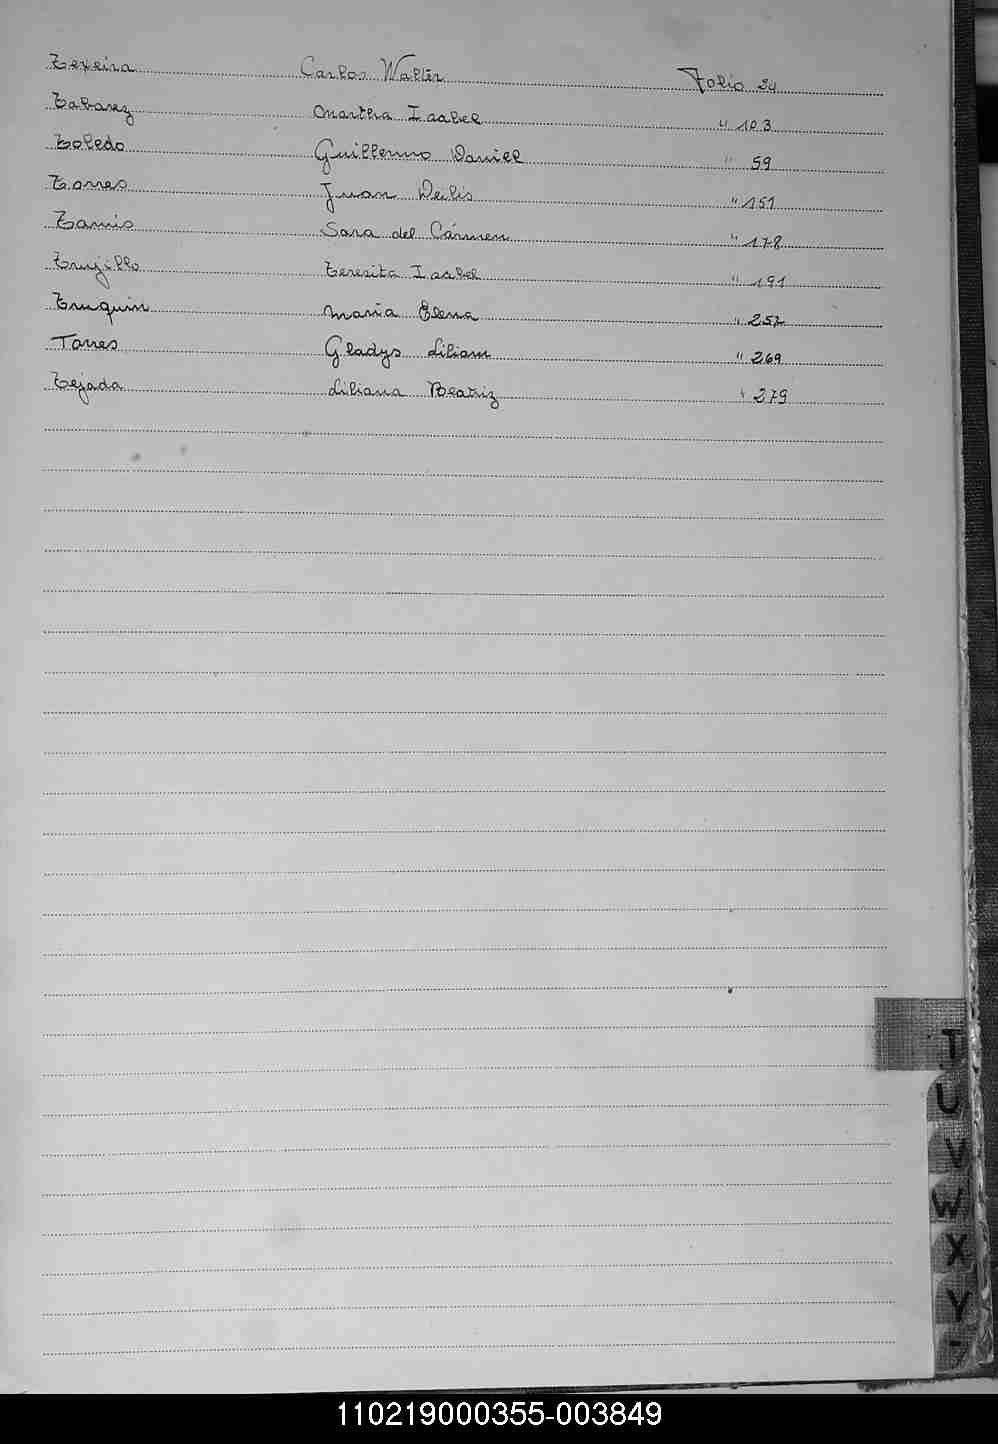 Texeira Carlos Walter Folio 34
Tabarez Martha Isabel " 103
Toledo Guillermo Daniel " 59
Torres Juan Deilis " 151
Tamis Sara del Cármen " 178
Trujillo Teresita Isabel " 191
Truquin María Elena " 252
Torres Gladys Liliam " 269
Tejada Liliana Beatriz " 279
T
U
V
W
X
Y
110219000355-003849